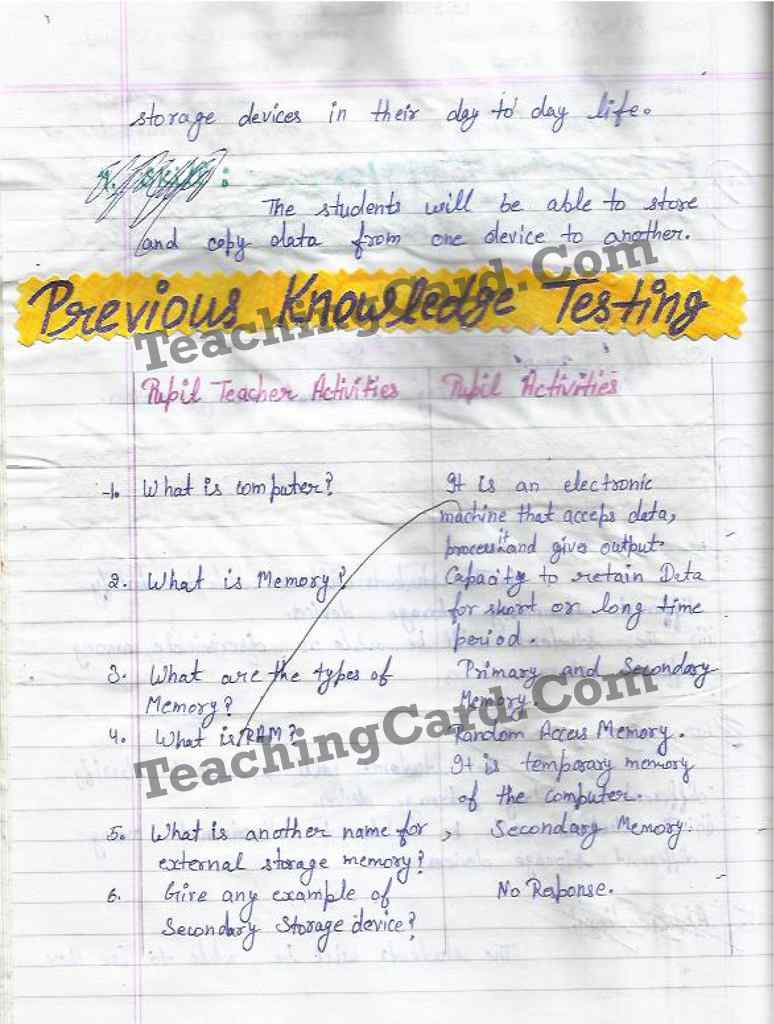 storage devices in their day to day life.
:
The students will be able to store
and copy data from one device to another.
Previous Knowledge Testing
TeachingCard.Com
Pupil Teacher Activities Pupil Activities
1. What is computer? It is an electronic
machine that acceps data,
process it and gives output.
2. What is Memory? Capacity to retain Data
for short or long time
period.
3. What are the types of Primary and Secondary
Memory? Memory.
4. What is RAM? Random Access Memory.
TeachingCard.Com
It is temporary memory
of the computer.
5. What is another name for , Secondary Memory.
external storage memory?
6. Give any example of No Response.
Secondary Storage device?